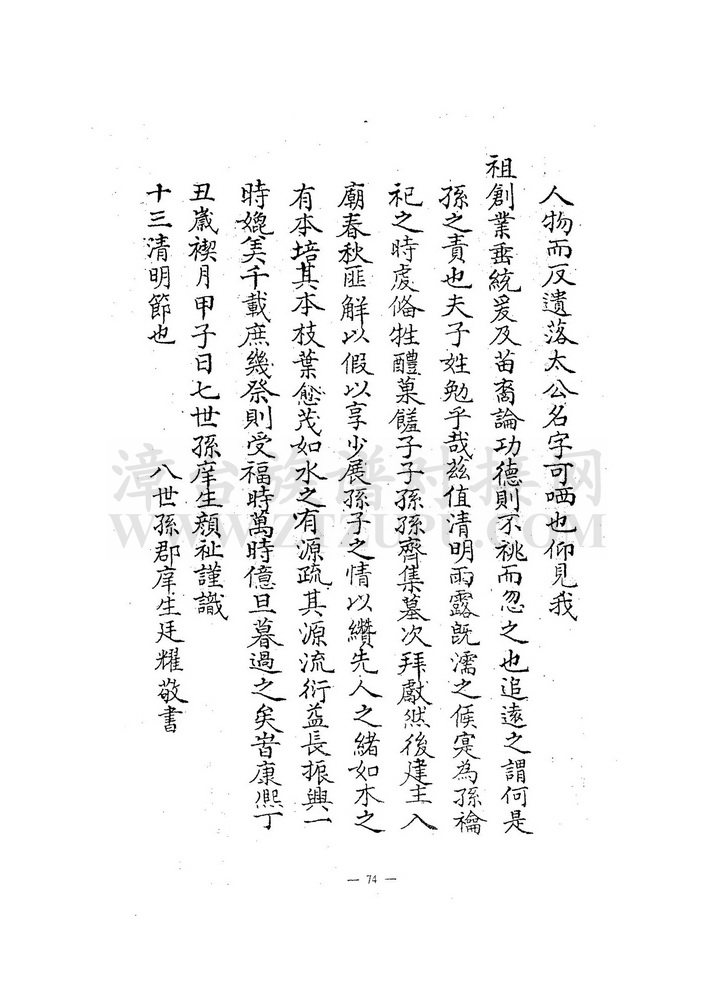 人物而反遺落太公名字可哂也仰見我
祖創業垂統爰及苗裔論功德則不祧而忽之也追遠之謂何是
孫之責也夫子姓勉乎哉茲值清明雨露既濡之候寔為孫禴
祀之時虔俻牲醴菓饈子子孫孫齊集墓次拜獻然後建主入
廟春秋匪觧以假以享少展孫子之情以纘先人之緒如木之
有本培其本枝葉愈茂如水之有源疏其源流衍益長振興一
時媲美千載庶幾祭則受福時萬時億旦暮過之矣旹康熙丁
丑歲禊月甲子日七世孫庠生顔祉謹識
十三清明節也 八世孫郡庠生廷耀敬書
— 74 —
漳台族谱对接网
WWW.ZTZUPU.COM